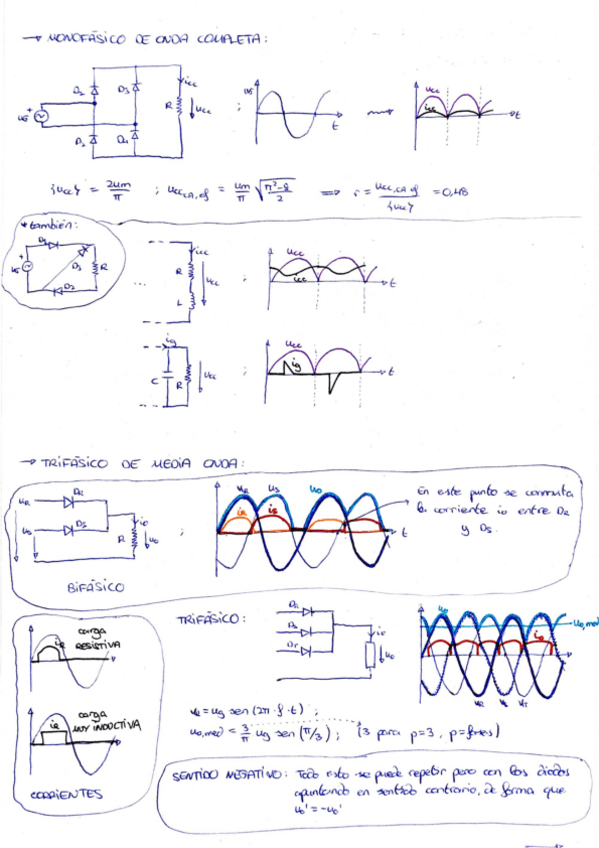 → MONOFÁSICO DE ONDA COMPLETA:
D2 D3 icc R ucc
ug t
ucc icc t
{ucc} = 2um/π ; uccCA,ef = um/π √(π²-8)/2 ⟹ r = ucc,CA ef/{ucc} = 0,48
* también:
D1 D3 R D2
icc R L ucc
ucc icc t
ig C R ucc
ucc ig t
→ TRIFÁSICO DE MEDIA ONDA:
uR DR
uS DS R io uo
BIFÁSICO
uR uS uo
iR iS t
En este punto se conmuta
la corriente io entre DR
y DS.
carga
RESISTIVA
iR
carga
MUY INDUCTIVA
iR
CORRIENTES
TRIFÁSICO:
DR
DS
DT
io
uo
uo uo,med
io
uR uS uT
uR = ug sen (2π·f·t) ;
uo,med = 3/π ug sen (π/3) ; (3 para p=3, p=fases)
SENTIDO NEGATIVO: Todo esto se puede repetir pero con los diodos
apuntando en sentido contrario, de forma que
uo' = -uo'